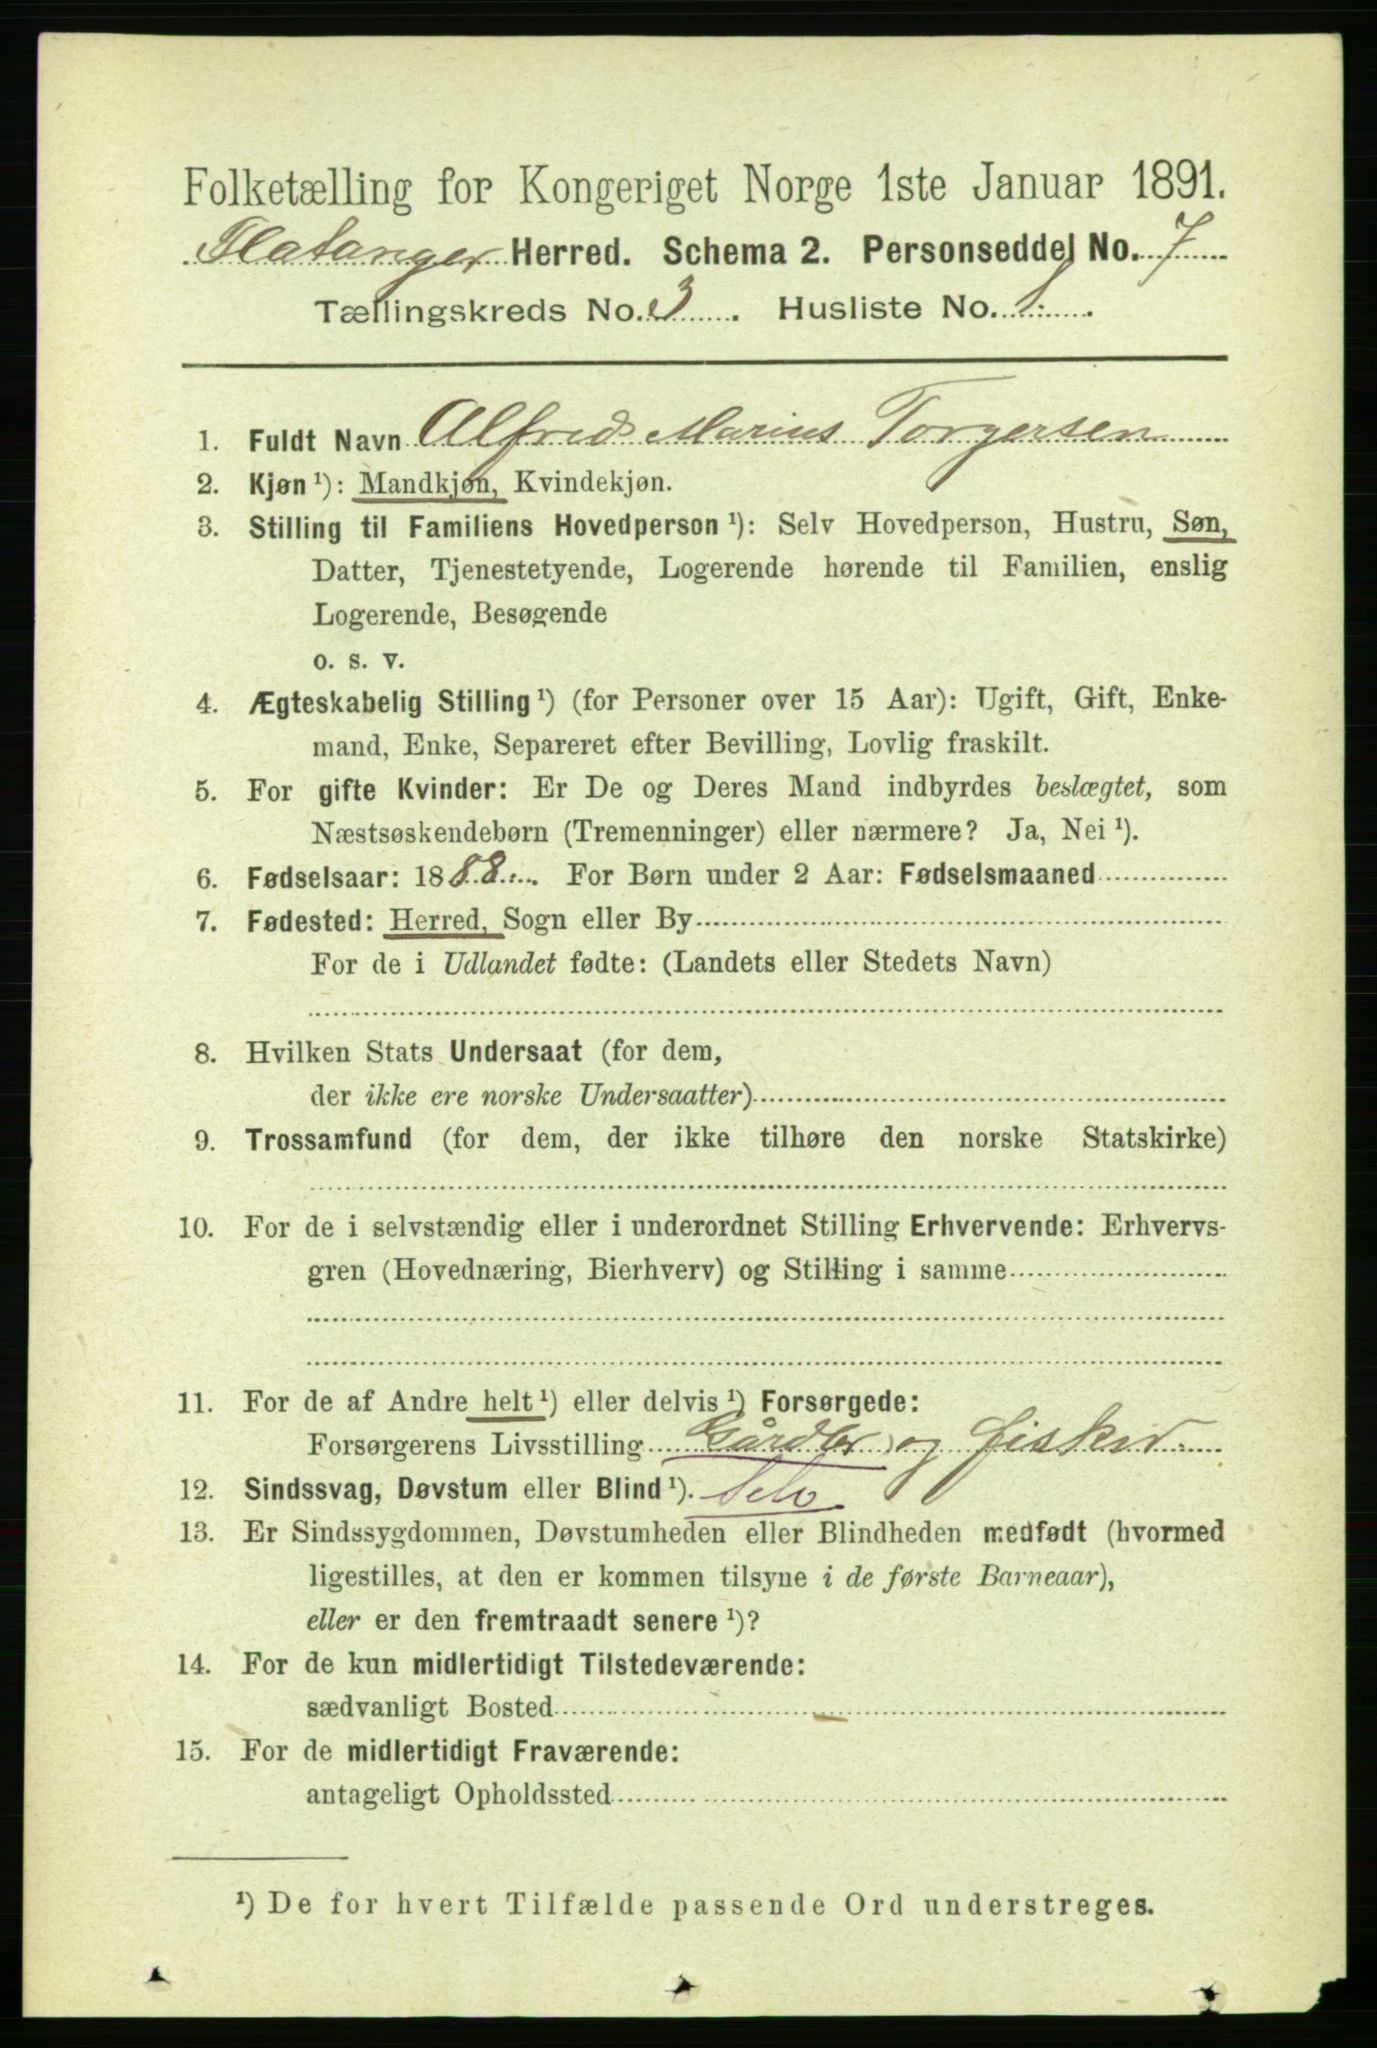 Folketælling for Kongeriget Norge 1ste Januar 1891.
Flatanger Herred. Schema 2. Personseddel No. 7
Tællingskreds No. 3. Husliste No. 1.
1. Fuldt Navn Alfred Marius Torgersen
2. Kjøn ¹): Mandkjøn, Kvindekjøn.
3. Stilling til Familiens Hovedperson ¹): Selv Hovedperson, Hustru, Søn,
Datter, Tjenestetyende, Logerende hørende til Familien, enslig
Logerende, Besøgende
o. s. v.
4. Ægteskabelig Stilling ¹) (for Personer over 15 Aar): Ugift, Gift, Enke-
mand, Enke, Separeret efter Bevilling, Lovlig fraskilt.
5. For gifte Kvinder: Er De og Deres Mand indbyrdes beslægtet, som
Næstsøskendebørn (Tremenninger) eller nærmere? Ja, Nei ¹).
6. Fødselsaar: 1888. For Børn under 2 Aar: Fødselsmaaned
7. Fødested: Herred, Sogn eller By
For de i Udlandet fødte: (Landets eller Stedets Navn)
8. Hvilken Stats Undersaat (for dem,
der ikke ere norske Undersaatter)
9. Trossamfund (for dem, der ikke tilhøre den norske Statskirke)
10. For de i selvstændig eller i underordnet Stilling Erhvervende: Erhvervs-
gren (Hovednæring, Bierhverv) og Stilling i samme
11. For de af Andre helt ¹) eller delvis ¹) Forsørgede:
Forsørgerens Livsstilling Gårdbr og fisker
12. Sindssvag, Døvstum eller Blind ¹). Selv
13. Er Sindssygdommen, Døvstumheden eller Blindheden medfødt (hvormed
ligestilles, at den er kommen tilsyne i de første Barneaar),
eller er den fremtraadt senere ¹)?
14. For de kun midlertidigt Tilstedeværende:
sædvanligt Bosted
15. For de midlertidigt Fraværende:
antageligt Opholdssted
¹) De for hvert Tilfælde passende Ord understreges.